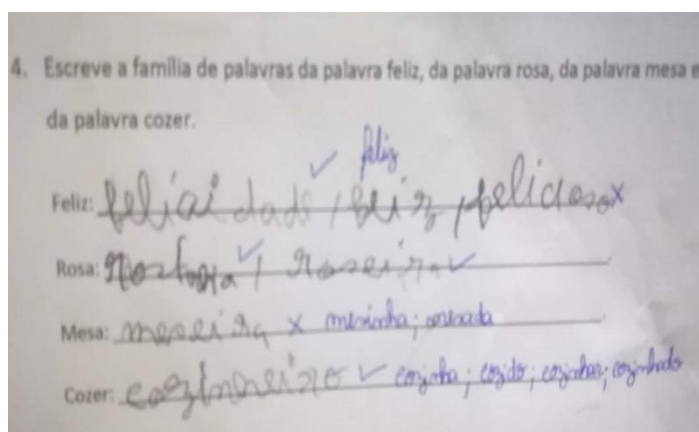 4. Escreve a família de palavras da palavra feliz, da palavra rosa, da palavra mesa e
da palavra cozer.
feliz
Feliz: felicidade, feliz, felidoso x
Rosa: roseira
Mesa: meseira x mesinha; mesada
Cozer: cozinheiro cozinha; cozido; cozinhar; cozinhado